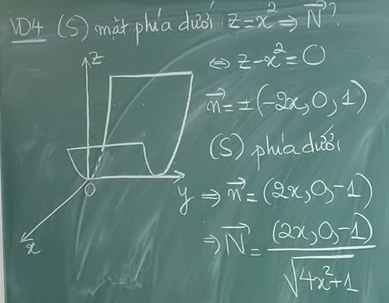 VD4 (S) mặt phía dưới z = x² ⇒ N⃗?
⇔ z - x² = 0
n⃗ = ±(-2x, 0, 1)
(S) phía dưới
⇒ n⃗ = (2x, 0, -1)
⇒ N⃗ = (2x, 0, -1) / √(4x² + 1)
z
O
y
x